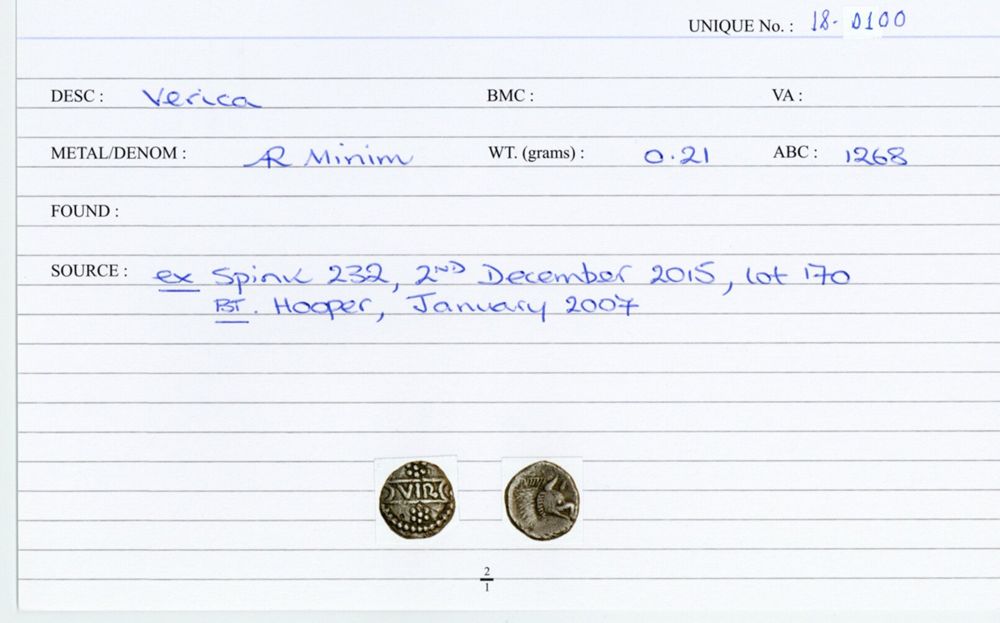 UNIQUE No. : 18- 0100
DESC : Verica BMC : VA :
METAL/DENOM : AR Minim WT. (grams) : 0.21 ABC : 1268
FOUND :
SOURCE : ex Spink 232, 2ND December 2015, lot 170
BT. Hooper, January 2007
VIR
2
1